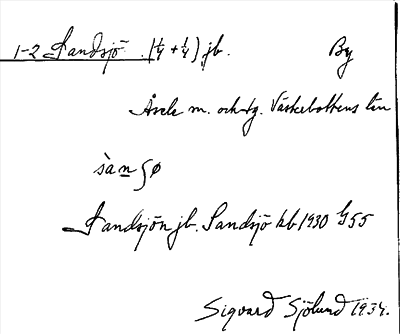 1-2 Sandsjö (1/4 + 1/4) jb. By
Åsele m. och tg. Västerbottens län
sànʃø
Sandsjön jb. Sandsjö kb 1930 G55
Sigvard Sjölund 1934.